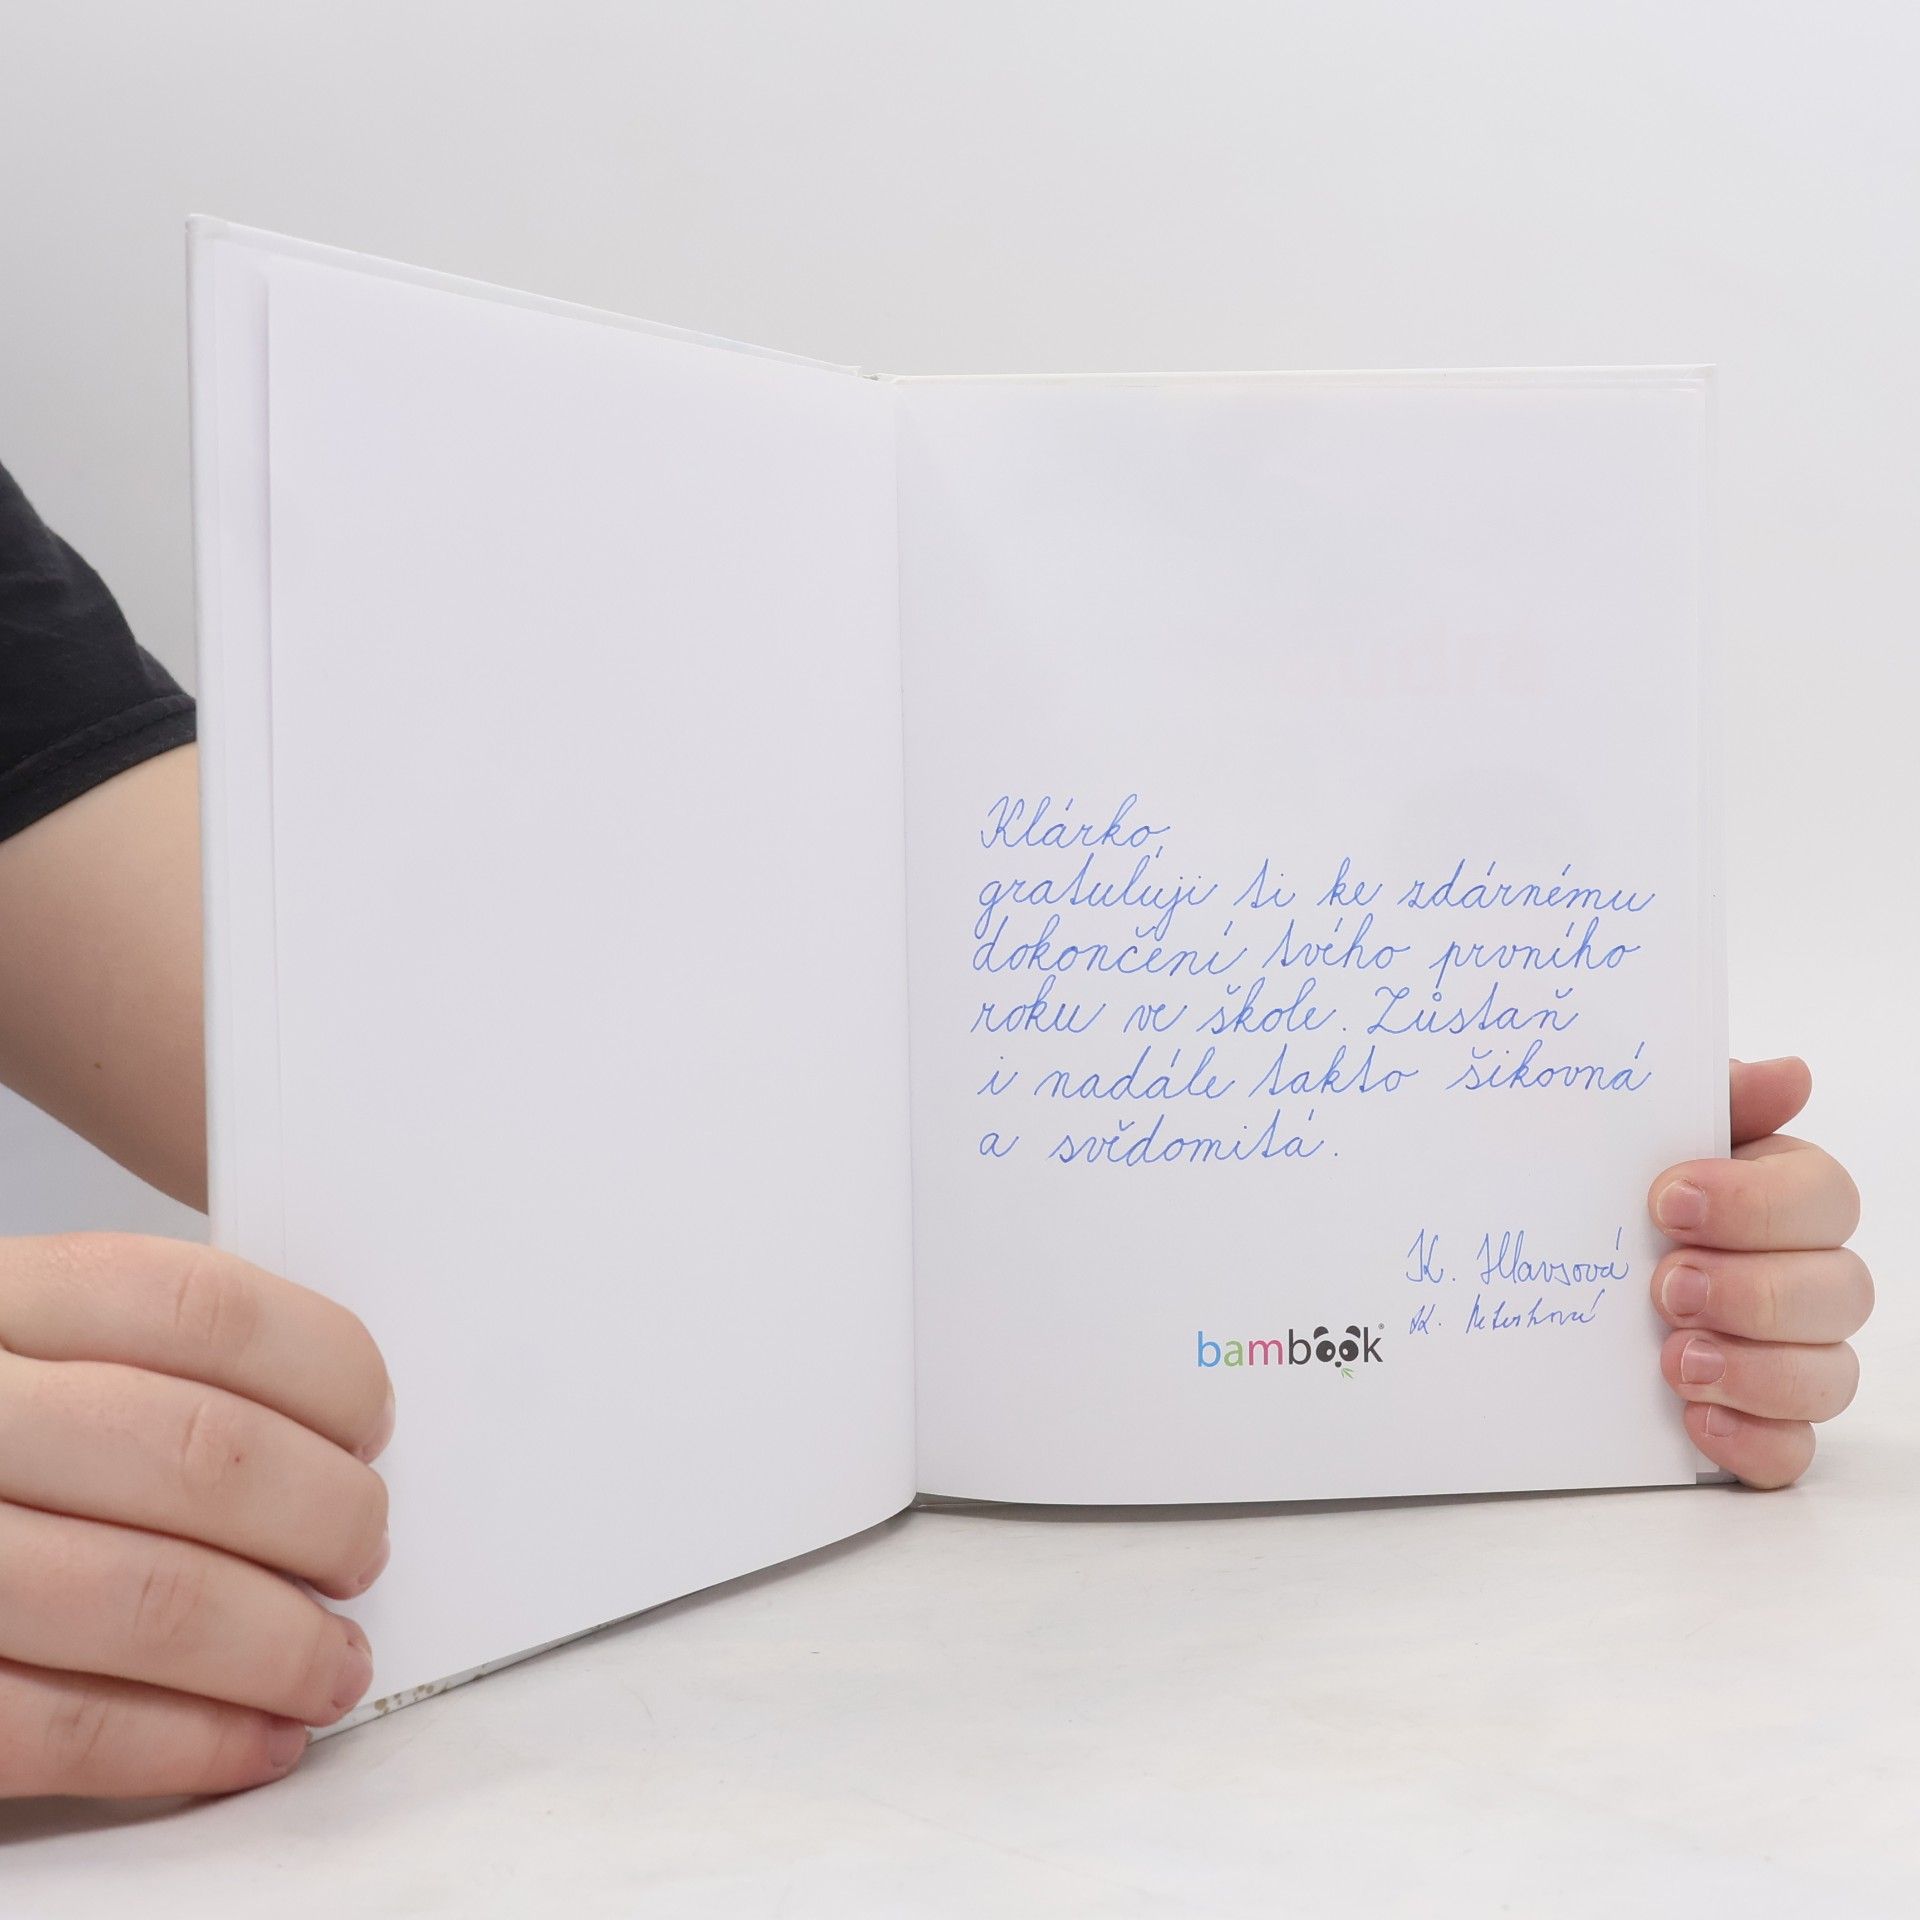 Klárko,
gratuluji ti ke zdárnému
dokončení tvého prvního
roku ve škole. Zůstaň
i nadále takto šikovná
a svědomitá.
K. Hlavsová
K.
bambook®